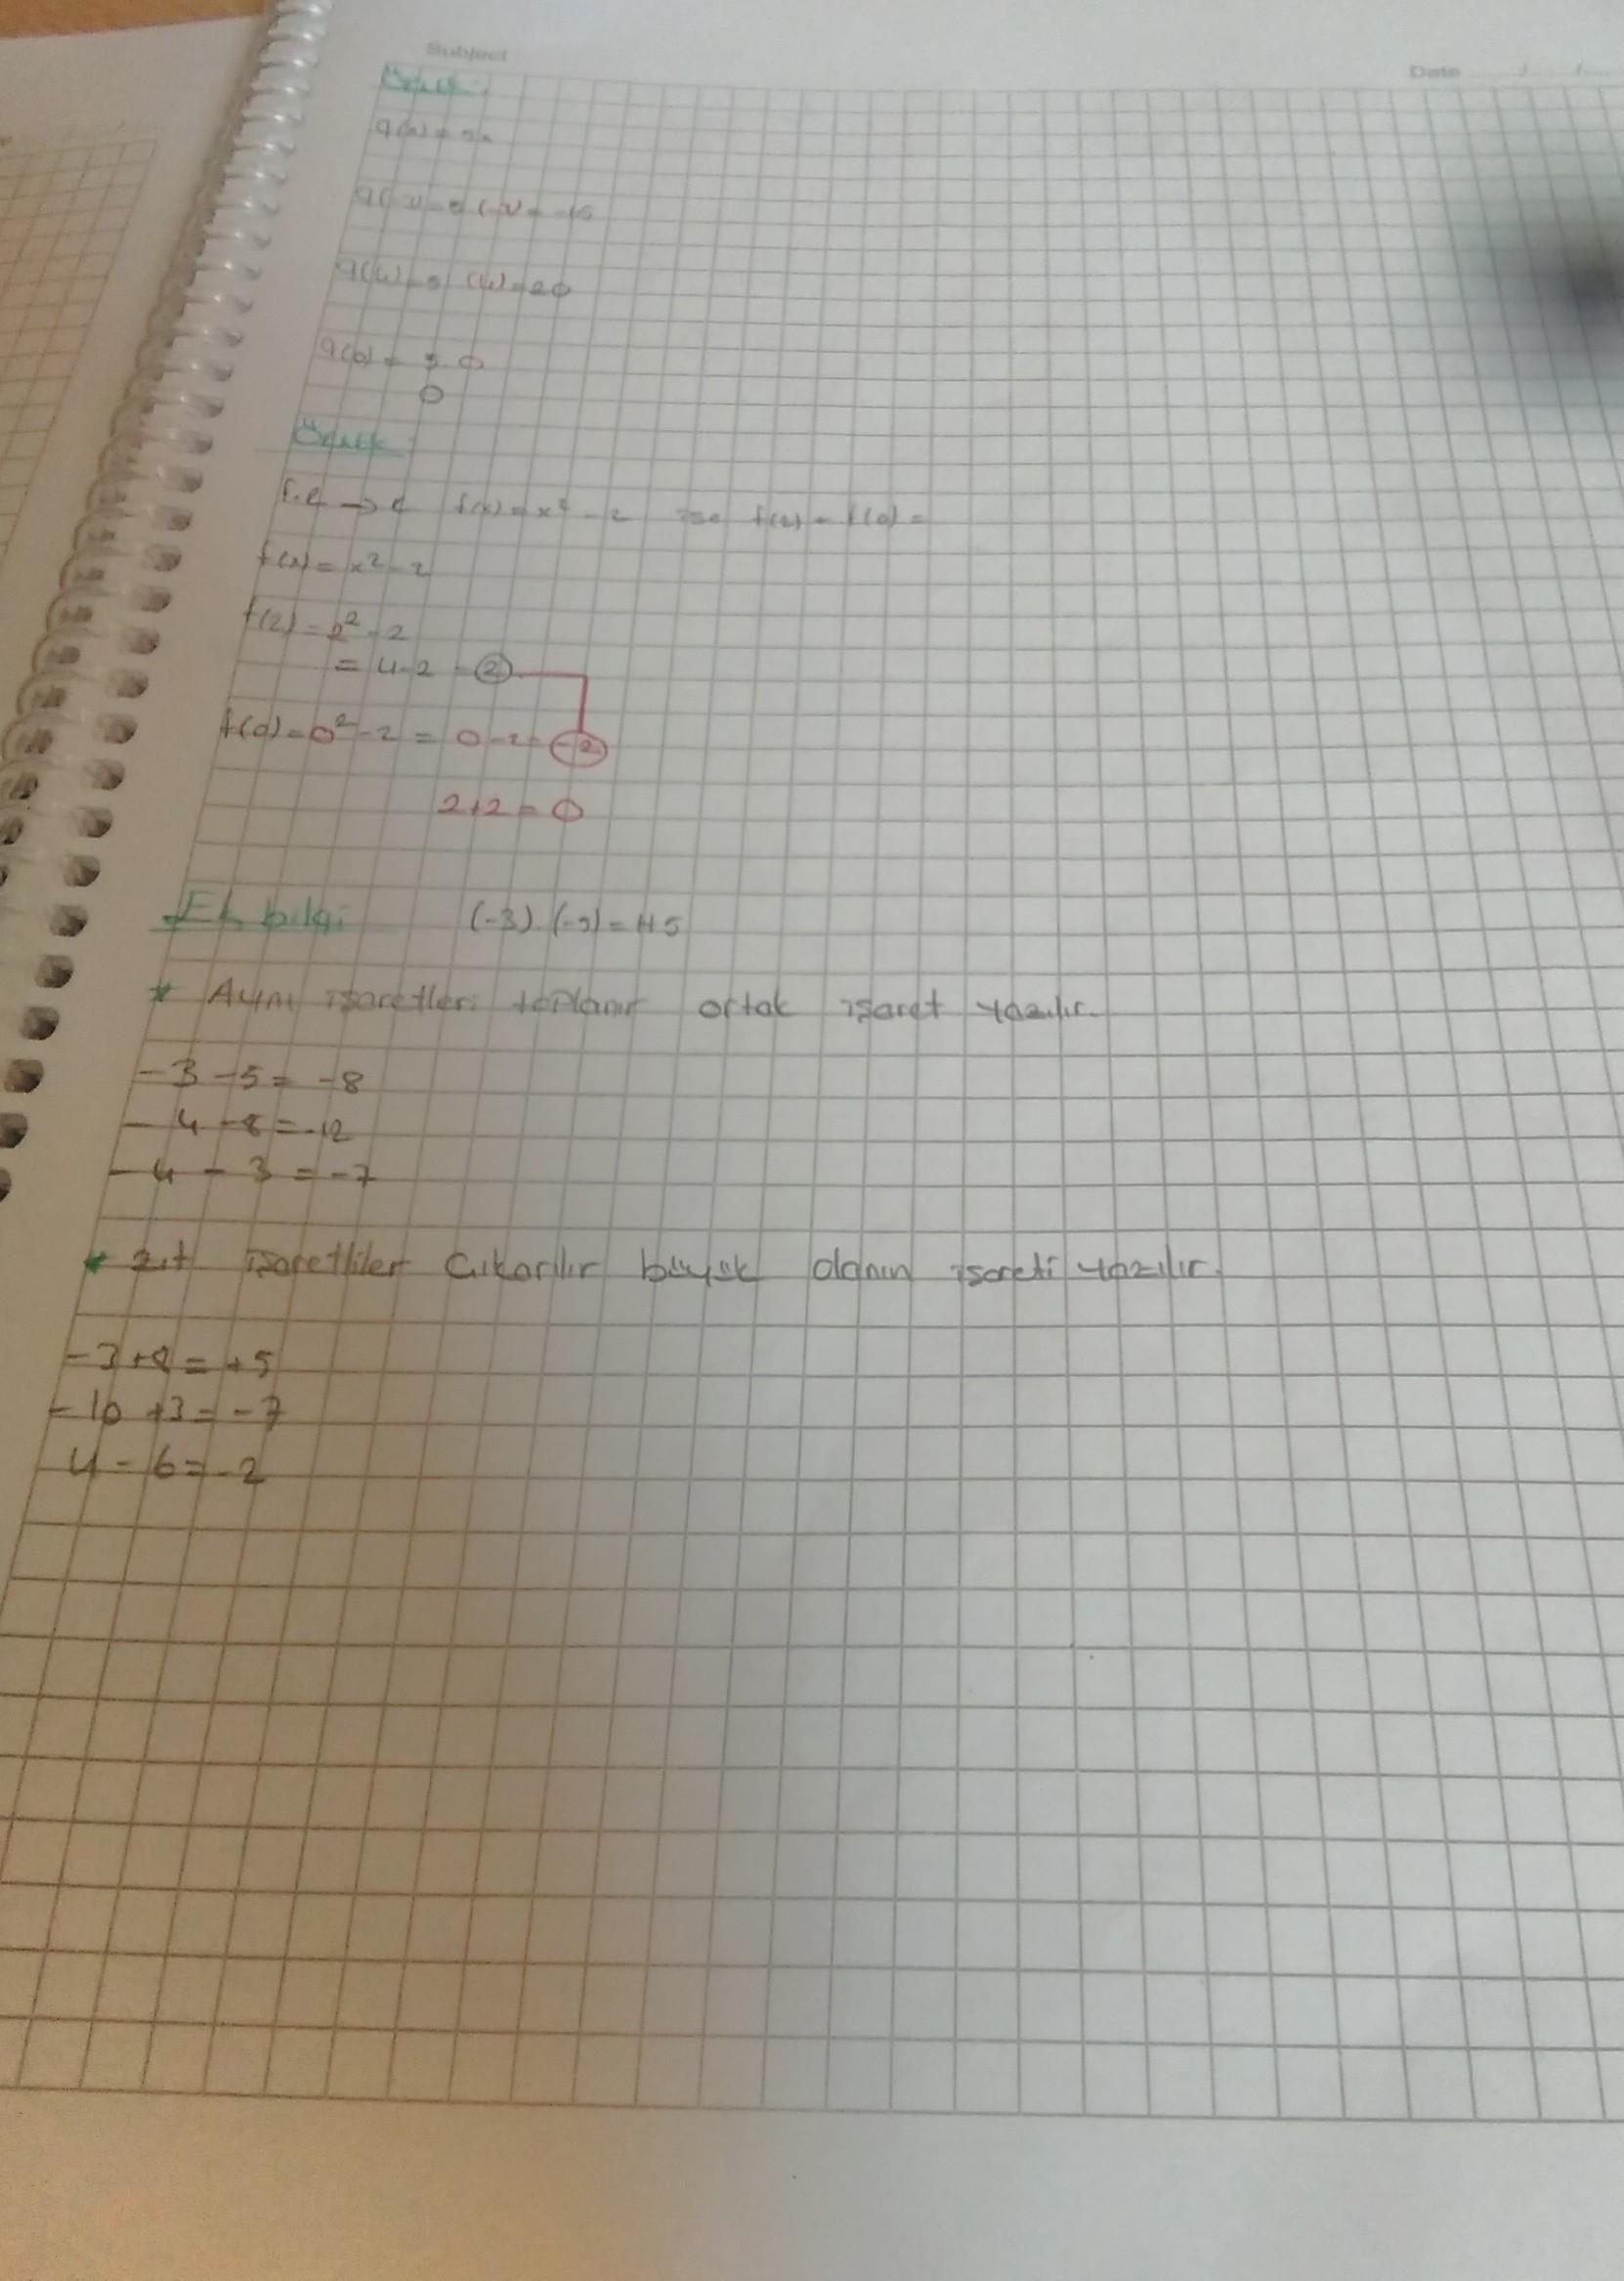 Subject
Date
Örnek:
g(x) = 5x
g(-3) = 5 (-3) = -15
g(4) = 5 (4) = 20
g(0) = 5.0
0
Örnek:
f(x) = x² - 2 ise f(2) - f(0) =
f(x) = x² - 2
f(2) = 2² - 2
= 4 - 2 = 2
f(0) = 0² - 2 = 0 - 2 = -2
2+2 = 0
Ek bilgi (-3).(-5) = +15
* Aynı işaretler toplanır ortak işaret yazılır.
-3 -5 = -8
-4 -8 = -12
-4 - 3 = -7
* Zıt işaretliler Çıkarılır büyük olanın işareti yazılır.
-3 +8 = +5
-10 +3 = -7
4 - 6 = -2